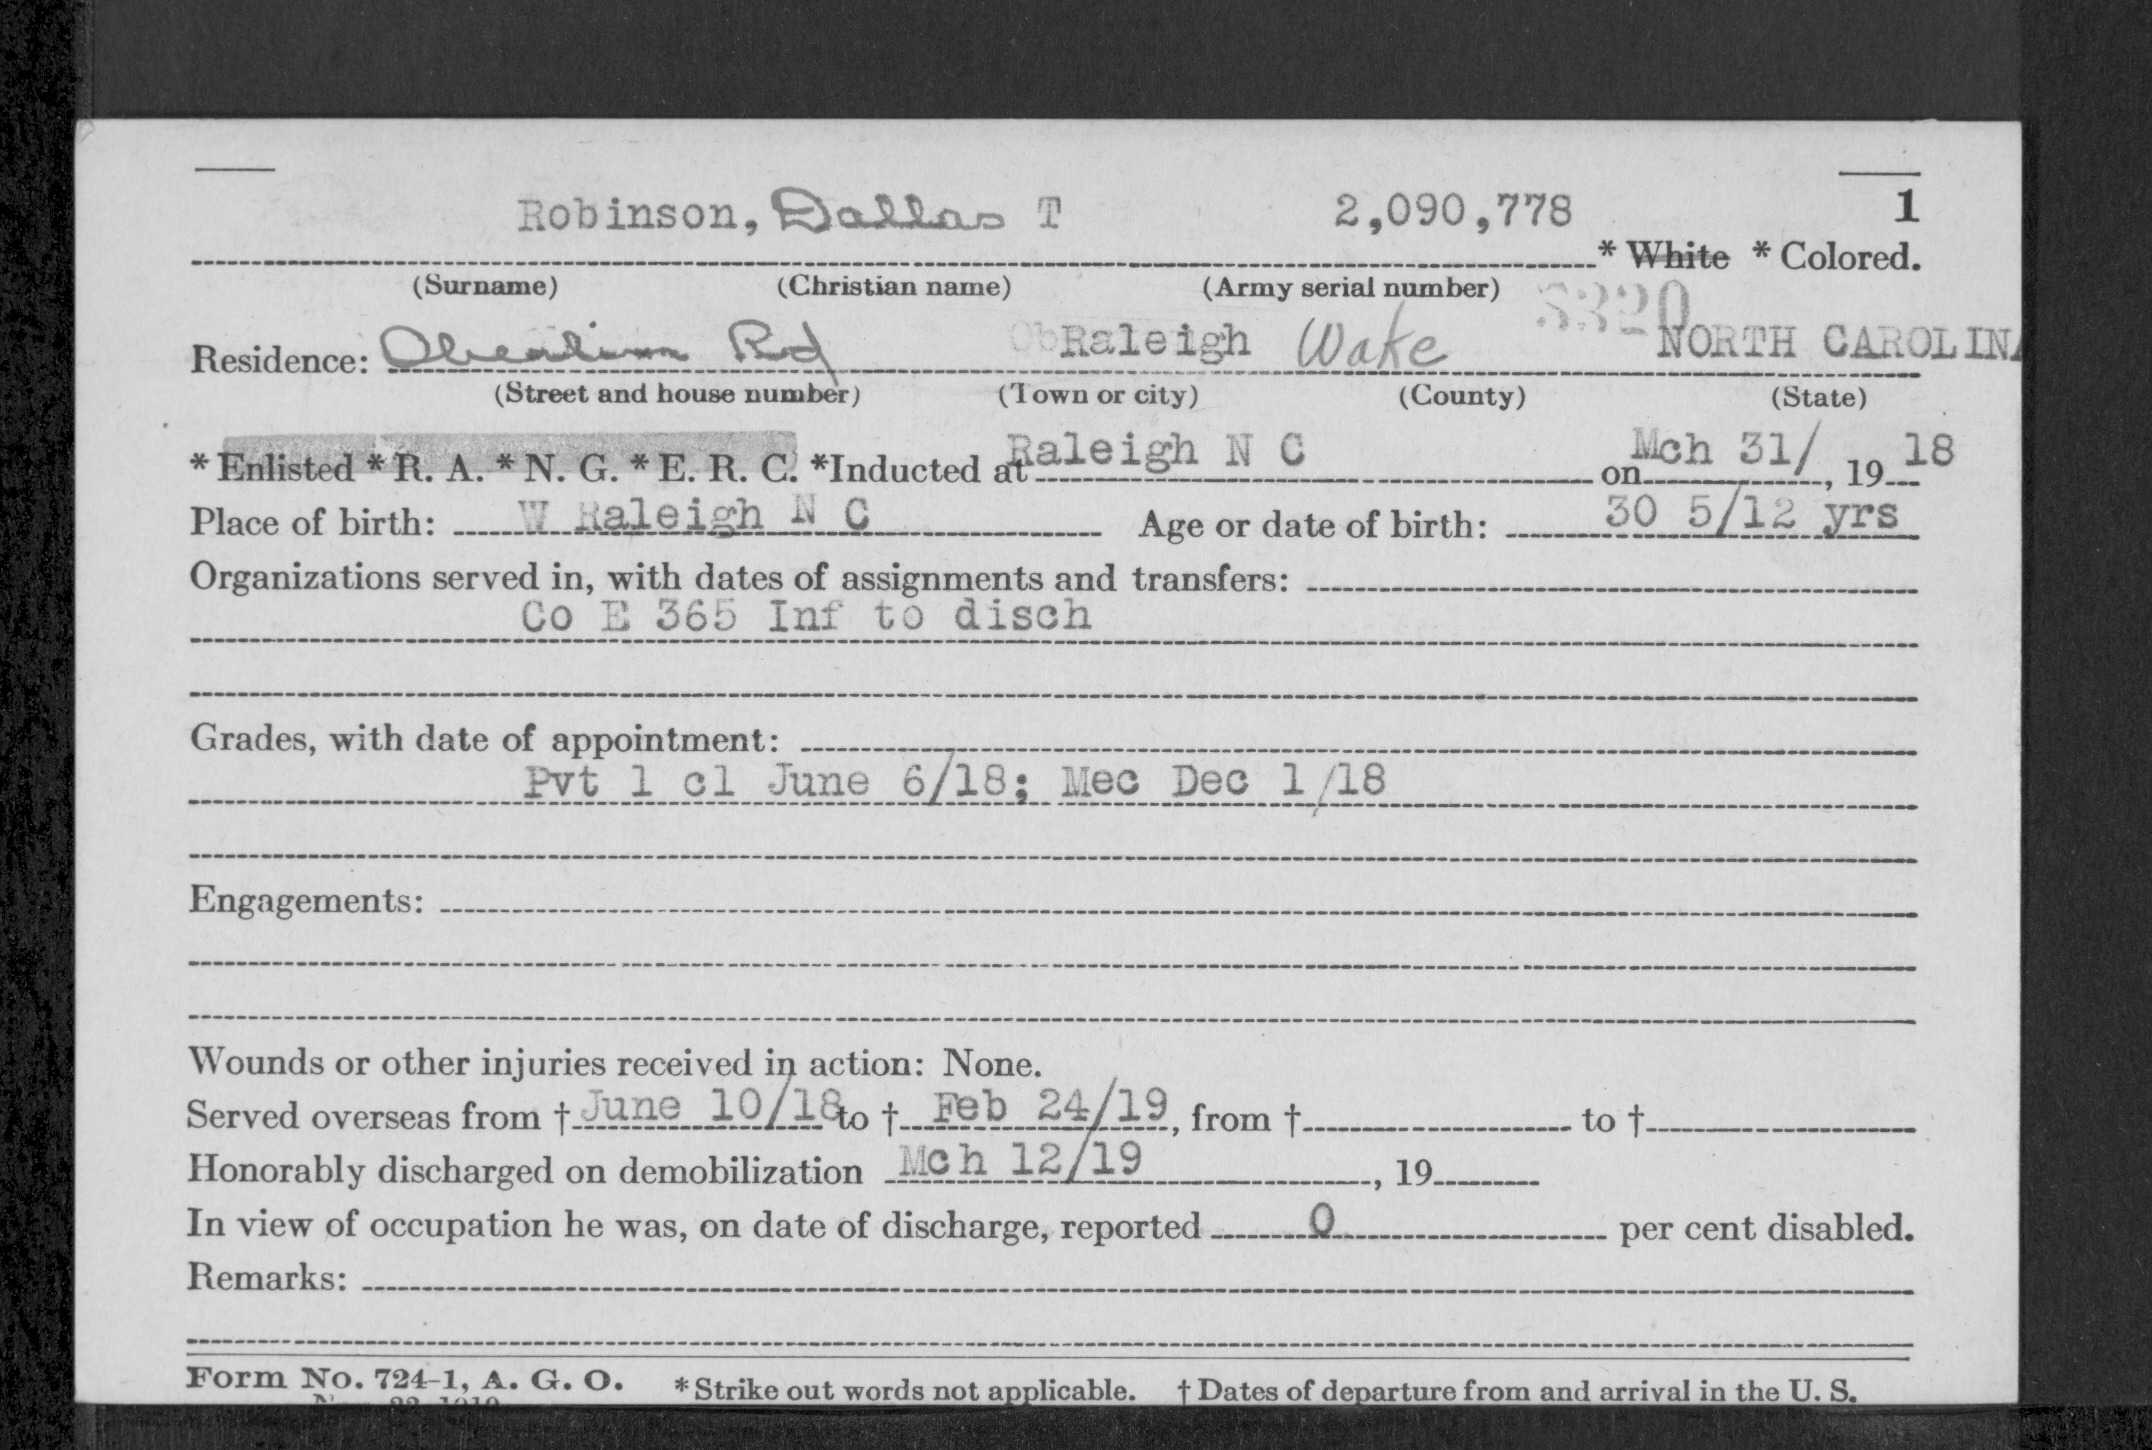 Robinson, Dallas T 2,090,778 1
* White * Colored.
(Surname) (Christian name) (Army serial number)
3320
Residence: Oberlin Rd Raleigh Wake NORTH CAROLINA
(Street and house number) (Town or city) (County) (State)
* Enlisted * R. A. * N. G. * E. R. C. *Inducted at Raleigh N C on Mch 31/, 19 18
Place of birth: W Raleigh N C Age or date of birth: 30 5/12 yrs
Organizations served in, with dates of assignments and transfers:
Co E 365 Inf to disch
Grades, with date of appointment:
Pvt 1 cl June 6/18; Mec Dec 1/18
Engagements:
Wounds or other injuries received in action: None.
Served overseas from † June 10/18 to † Feb 24/19, from † to †
Honorably discharged on demobilization Mch 12/19, 19
In view of occupation he was, on date of discharge, reported 0 per cent disabled.
Remarks:
Form No. 724-1, A. G. O. * Strike out words not applicable. † Dates of departure from and arrival in the U. S.